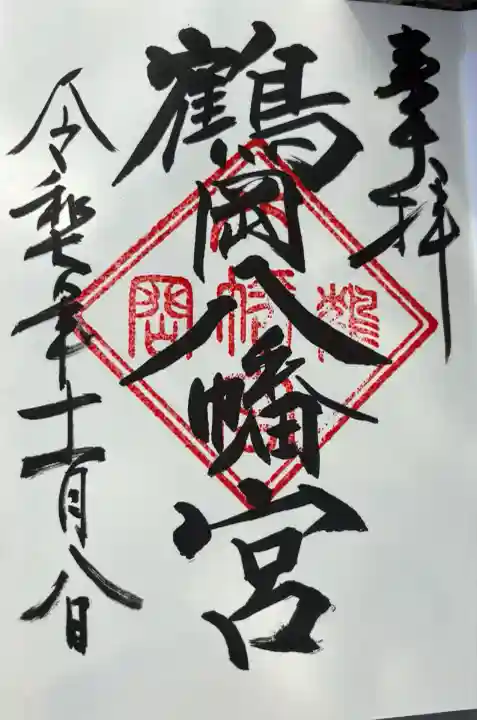 奉拝
鶴岡八幡宮
令和七年十一月八日